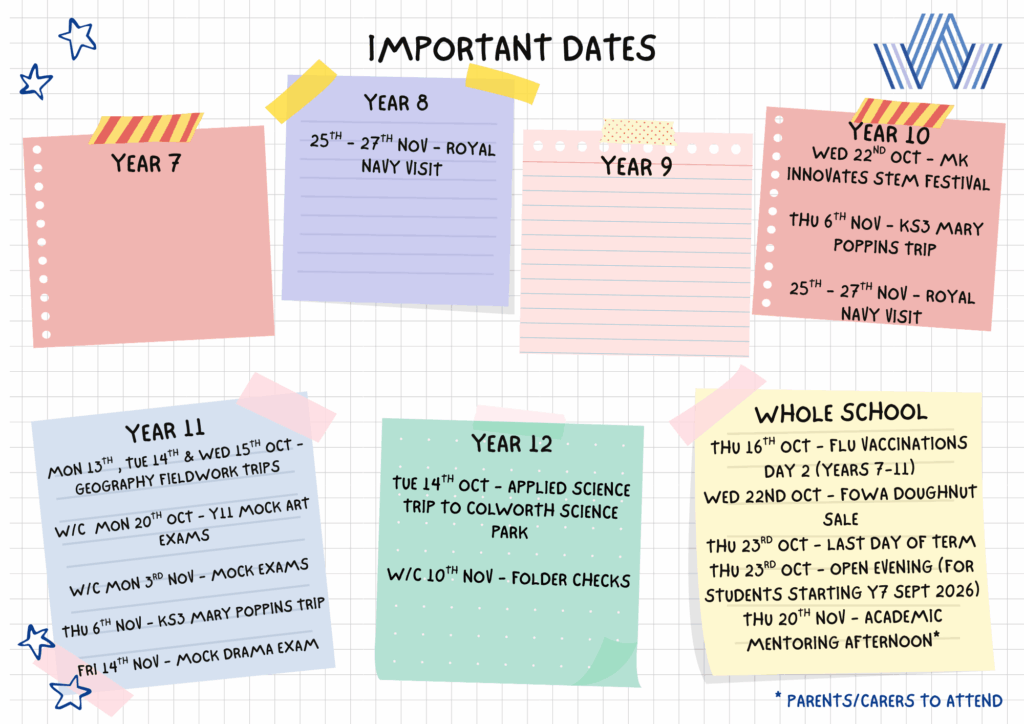 IMPORTANT DATES
YEAR 7
YEAR 8
25TH - 27TH NOV - ROYAL
NAVY VISIT
YEAR 9
YEAR 10
WED 22ND OCT - MK
INNOVATES STEM FESTIVAL
THU 6TH NOV - KS3 MARY
POPPINS TRIP
25TH - 27TH NOV - ROYAL
NAVY VISIT
YEAR 11
MON 13TH , TUE 14TH & WED 15TH OCT -
GEOGRAPHY FIELDWORK TRIPS
W/C MON 20TH OCT - Y11 MOCK ART
EXAMS
W/C MON 3RD NOV - MOCK EXAMS
THU 6TH NOV - KS3 MARY POPPINS TRIP
FRI 14TH NOV - MOCK DRAMA EXAM
YEAR 12
TUE 14TH OCT - APPLIED SCIENCE
TRIP TO COLWORTH SCIENCE
PARK
W/C 10TH NOV - FOLDER CHECKS
WHOLE SCHOOL
THU 16TH OCT - FLU VACCINATIONS
DAY 2 (YEARS 7-11)
WED 22ND OCT - FOWA DOUGHNUT
SALE
THU 23RD OCT - LAST DAY OF TERM
THU 23RD OCT - OPEN EVENING (FOR
STUDENTS STARTING Y7 SEPT 2026)
THU 20TH NOV - ACADEMIC
MENTORING AFTERNOON*
* PARENTS/CARERS TO ATTEND